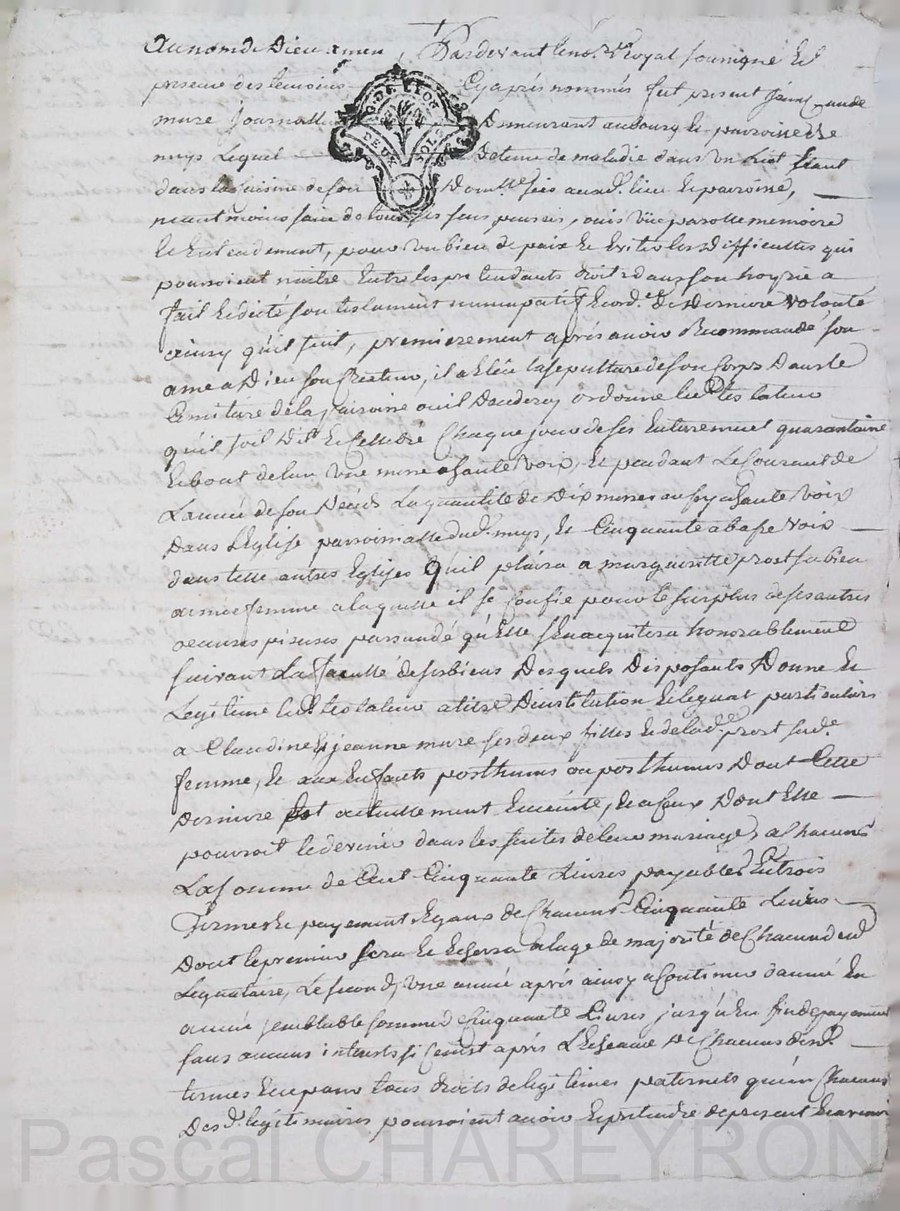 Au nom de Dieu amen, Pardevant le no.re Royal soussigné et
presence des temoins Cyaprés nommés fut present Jean Claude
mure journallier Demeurant au bourg et parroisse de
nuys Lequel detenu de maladie dans un Lict Etant
dans la Cuisine de son Domlle sies aud. lieu et parroisse,
neantmoins sain de tous ses sens pensées, ouis vüe parolle memoire
et Entendement, pour un bien de paix et Eviter les Difficultes qui
pourroient naitre Entre les pretendants droit dans son hoyrie a
fait et dicté son testament nuncupatif et ord.ce de Derniere volonté
ainsy qu'il suit, premierement aprés avoir Recommandé son
ame a Dieu son Createur, il a Eleû la sepulture de son Corps Dans le
Cimitiere de la parroisse ou il Decedera ordonne led. testateur
qu'il soit Dit et Cellebré Chaque jour de ses Enterrement quarantaine
et bout de l'an une messe a haute voix, et pendant Le Courant de
L'année de son Déces La quantité de Dix messes aussy a haute voix
Dans L'Eglise parroissialle dud. nuys, et Cinquante a basse voix
dans telle autres Eglises Qu'il plaira a marguerite prost sa bien
aimée femme a laquelle il se Confie pour le surplus de ses autres
oeuvres pieuses persuadé qu'Elle s'en acquitera honorablement
suivant La faculté de ses biens Desquels Disposants Donne et
Legitime led. testateur a titre D'institution et legat particuliers
a Claudine et jeanne mure ses deux filles et de lad. prost sad.
femme, et aux Enfants posthumes ou posthumes Dont Cette
Derniere Est actuellement Enceinte, et a Ceux Dont Elle
pourroit le devenir dans les suites de leur mariage, a Chacuns
La somme de Cent Cinquante Livres payables En trois
Termes et payement Egaux de Chacuns Cinquante Livres
Dont le premier sera et Echerra a l'age de majorité de Chacun desd.
Legataire, Le second, une année aprés ainsy a Continuer d'année En
année semblable somme de Cinquante Livres jusqu'En fin de payement
sans aucuns interests si Ce n'est aprés L'Echeance De Chacuns desd.
termes et ce pour tous droits de legitimes paternels qu'un Chacuns
Desd. legitimaires pourroient avoir et pretendre de present et a venir
Pascal CHAREYRON
G. DE LYON
DEUX SOLS